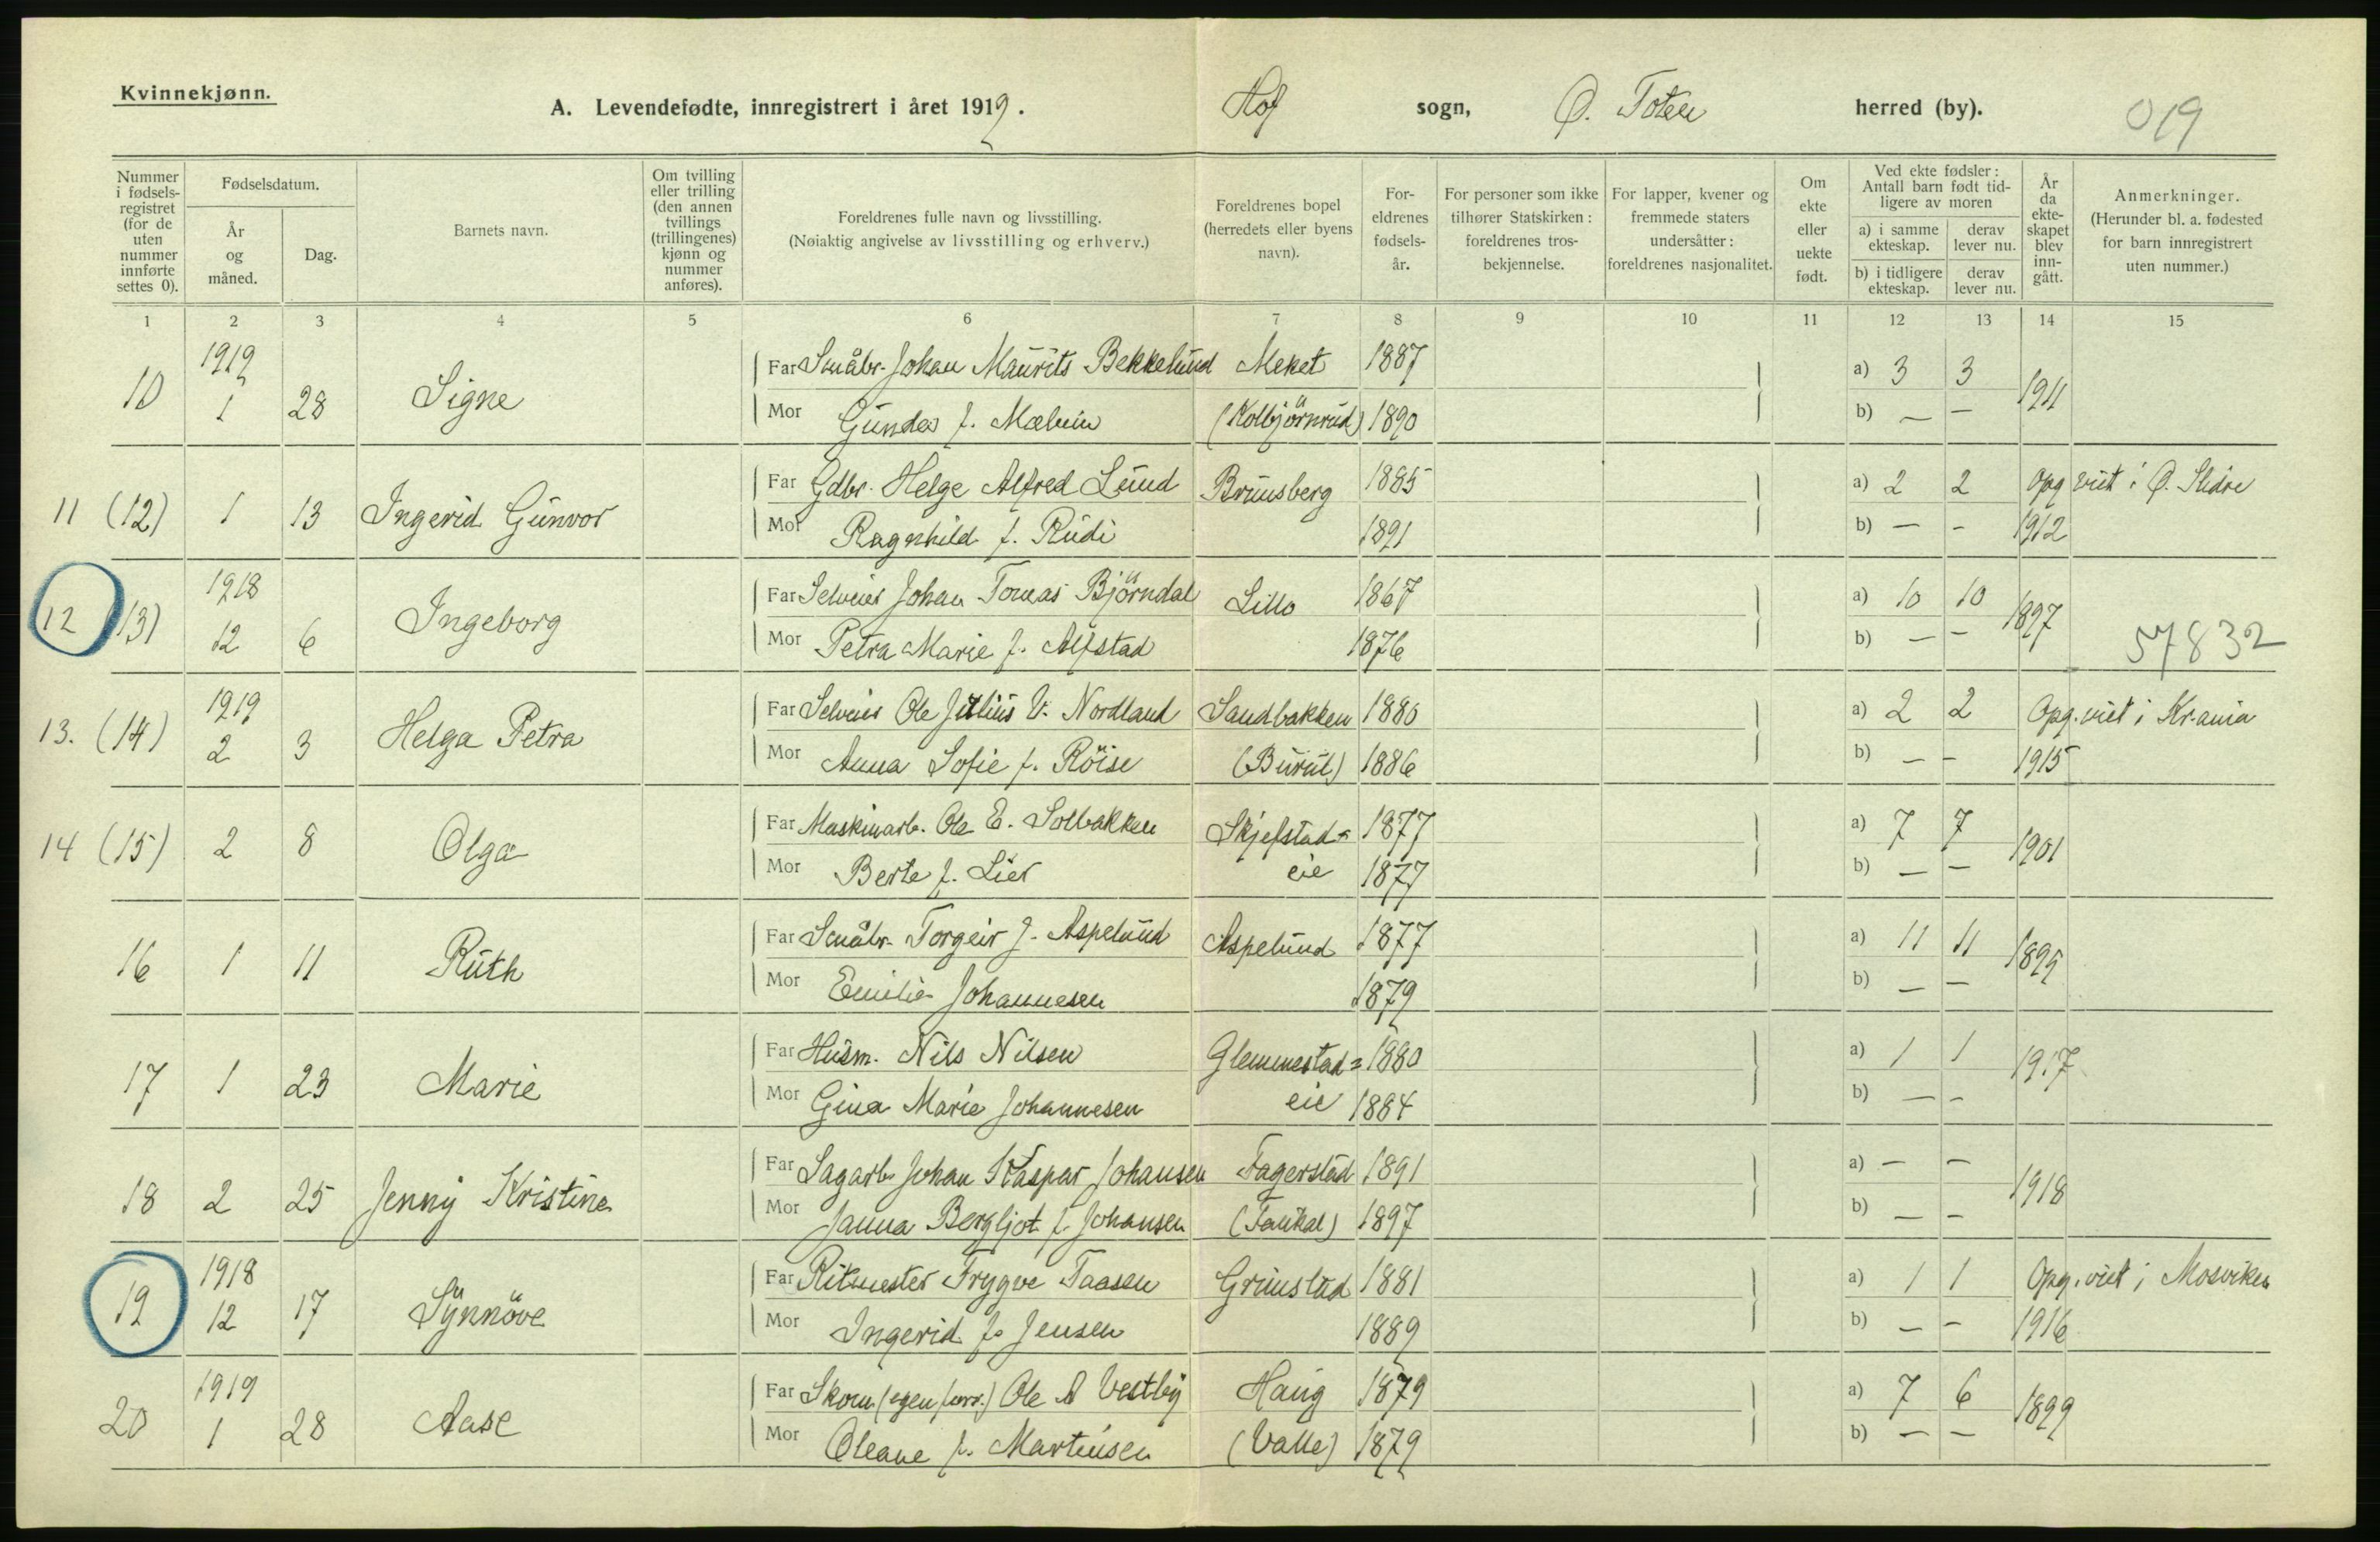 Kvinnekjønn.
A. Levendefødte, innregistrert i året 1919. Hof sogn, Ø. Toten herred (by). 019
Nummer i fødselsregistret (for de uten nummer innførte settes 0).
Fødselsdatum.
År og måned.
Dag.
Barnets navn.
Om tvilling eller trilling (den annen tvillings (trillingenes) kjønn og nummer anføres).
Foreldrenes fulle navn og livsstilling.
(Nøiaktig angivelse av livsstilling og erhverv.)
Foreldrenes bopel (herredets eller byens navn).
Foreldrenes fødselsår.
For personer som ikke tilhører Statskirken: foreldrenes trosbekjennelse.
For lapper, kvener og fremmede staters undersåtter: foreldrenes nasjonalitet.
Om ekte eller uekte født.
Ved ekte fødsler: Antall barn født tidligere av moren
a) i samme ekteskap. derav lever nu.
b) i tidligere ekteskap. derav lever nu.
År da ekteskapet blev inngått.
Anmerkninger.
(Herunder bl. a. fødested for barn innregistrert uten nummer.)
1 2 3 4 5 6 7 8 9 10 11 12 13 14 15
10 1919 1 28 Signe Far Småbr. Johan Maurits Bekkelund Meket 1887 a) 3 3 1911
Mor Gunda f. Mælum (Kolbjörnrud) 1890 b) — —
11 (12) 1 13 Ingerid Gunvor Far Gdbr. Helge Alfred Lund Brunsberg 1885 a) 2 2 Opg. viet i Ø. Slidre
Mor Ragnhild f. Rudi 1891 b) — - 1912
12 (13) 1918 12 6 Ingeborg Far Selveier Johan Tomas Björndal Lillo 1867 a) 10 10 1897
Mor Petra Marie f. Alfstad 1876 b) — — 57832
13. (14) 1919 2 3 Helga Petra Far Selveier Ole Julius V. Nordland Sandbakken 1880 a) 2 2 Opg. viet i Kr.ania
Mor Anna Sofie f. Röise (Burul) 1886 b) — - 1915
14 (15) 2 8 Olga Far Maskinarb. Ole E. Solbakken Skjefstad- 1877 a) 7 7 1901
Mor Berte f. Lier eie 1877 b) — —
16 1 11 Ruth Far Småbr. Torgeir J. Aspelund Aspelund 1877 a) 11 11 1895
Mor Emilie Johannesen 1879 b) — —
17 1 23 Marie Far Husm. Nils Nilsen Glemmestad= 1880 a) 1 1 1917
Mor Gina Marie Johannesen eie 1884 b) — -
18 2 25 Jenny Kristine Far Sagarb. Johan Kaspar Johansen Fagerstad 1891 a) — — 1918
Mor Janna Bergljot f. Johansen (Faukal) 1897 b) — -
19 1918 12 17 Synnöve Far Ritmester Trygve Taasen Grimstad 1881 a) 1 1 Opg. viet i Mosviken
Mor Ingerid f. Jensen 1889 b) — - 1916
20 1919 1 28 Aase Far Skom. (egen forr.) Ole A Vestby Haug 1879 a) 7 6 1899
Mor Oleane f. Martinsen (Valle) 1879 b) — —